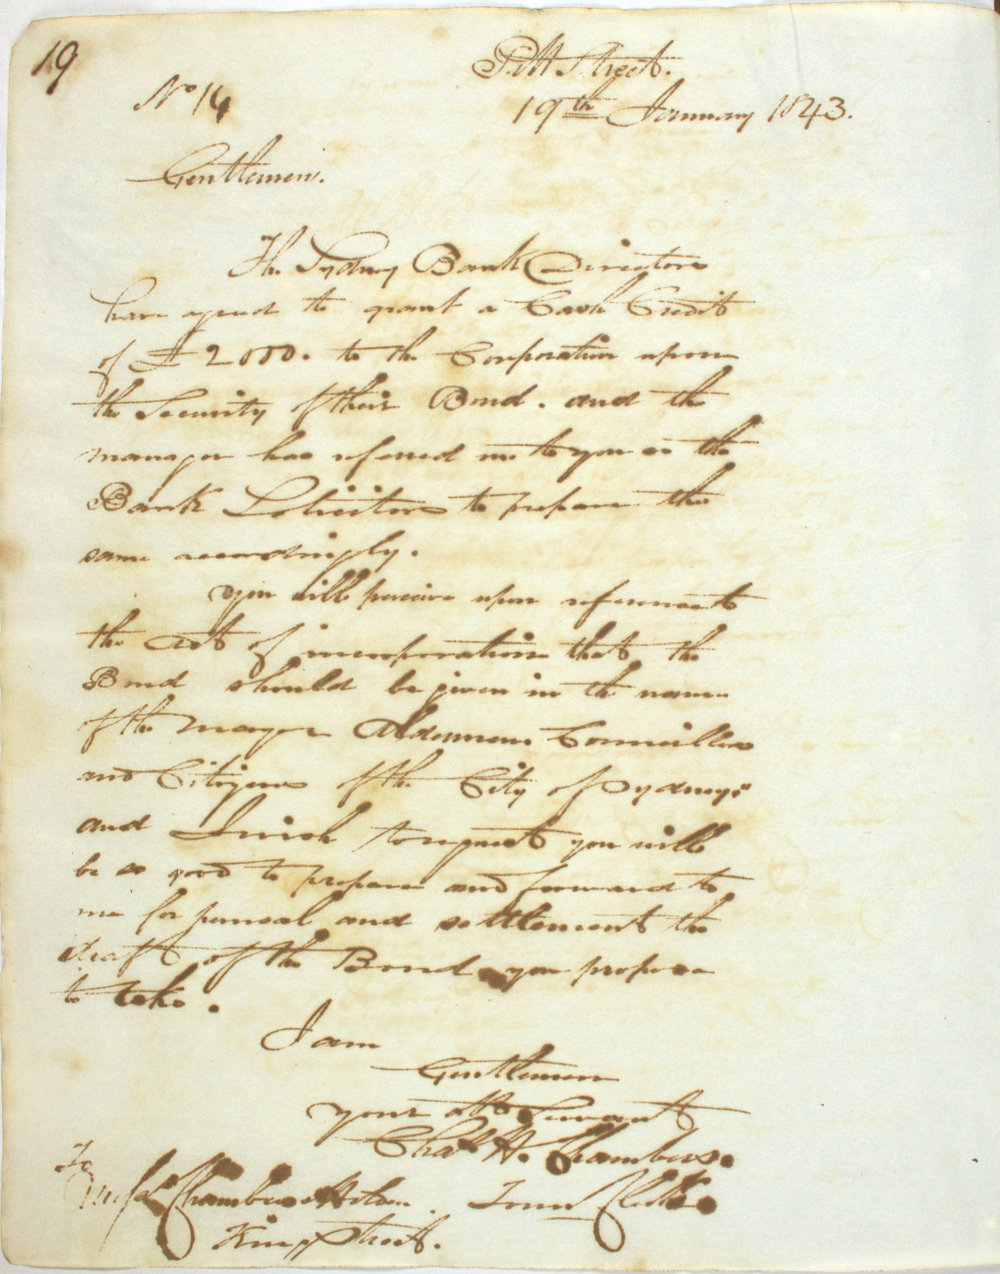 19
Pitt Street.
No 14
19th January 1843.
Gentlemen.
The Sydney Bank Directors
have agreed to grant a Cash Credit
of £2000. to the Corporation upon
the Security of their Bond. and the
manager has referred me to you as the
Bank Solicitors to prepare the
same accordingly.
You will perceive upon reference to
the Act of incorporation that the
Bond should be given in the name
of the Mayor Aldermen Councillors
and Citizens of the City of Sydney;
and I wish to request you will
be so good to prepare and forward to
me for perusal and settlement the
draft of the Bond you propose
to take.
I am
Gentlemen
your obt Servant
Chas H. Chambers.
To
Messrs Chambers & Holden. Town Clerk.
King Street.